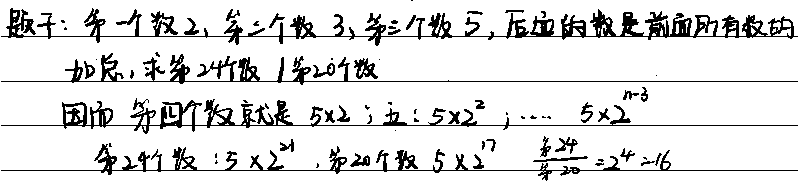 题干：第一个数2，第二个数3，第三个数5，后面的数是前面所有数的
加总，求第24个数/第20个数
因而 第四个数就是 5×2；五：5×2²；…… 5×2ⁿ⁻³
第24个数：5×2²¹，第20个数 5×2¹⁷ 第24/第20=2⁴=16